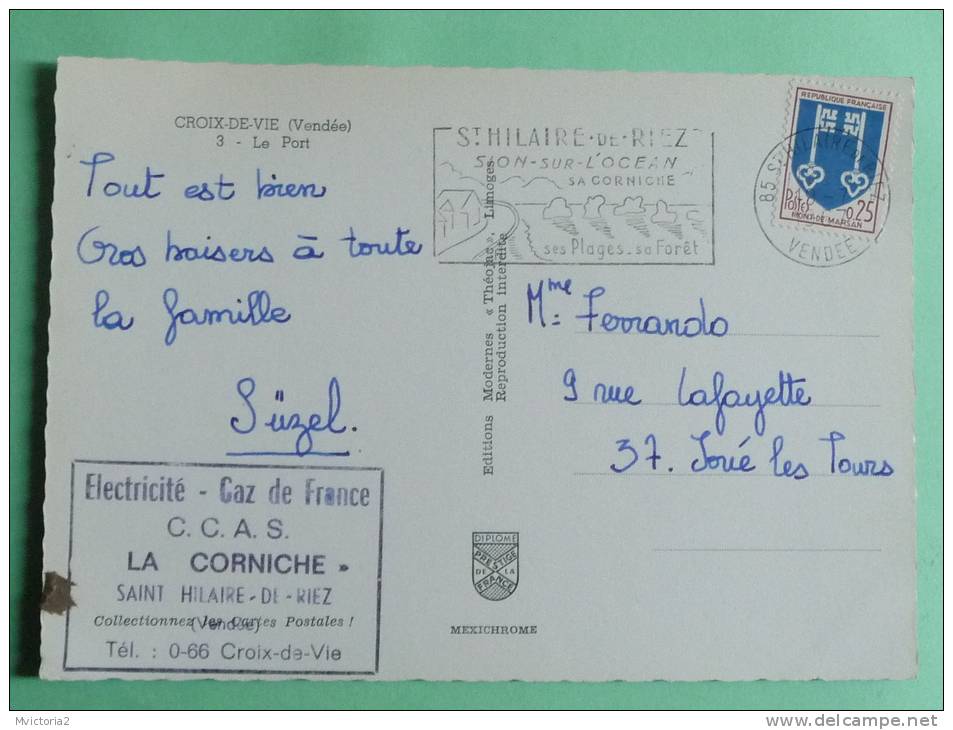 CROIX-DE-VIE (Vendée)
3 - Le Port
Tout est bien
Gros baisers à toute
la famille
Süzel.
Electricité - Gaz de France
C. C. A. S.
LA CORNICHE »
SAINT HILAIRE-DE-RIEZ
(Vendée)
Collectionnez les Cartes Postales !
Tél. : 0-66 Croix-de-Vie
Editions Modernes « Théojac », Limoges
Reproduction interdite
ST HILAIRE-DE-RIEZ
SION-SUR-L'OCEAN
SA CORNICHE
ses Plages - sa Forêt
85 ST HILAIRE
VENDEE
REPUBLIQUE FRANÇAISE
Postes 0,25
MONT-DE-MARSAN
Mme Ferrando
9 rue Lafayette
37. Joué les Tours
DIPLOME
PRESTIGE
DE LA
FRANCE
MEXICHROME
Mvictoria2
delcampe.net